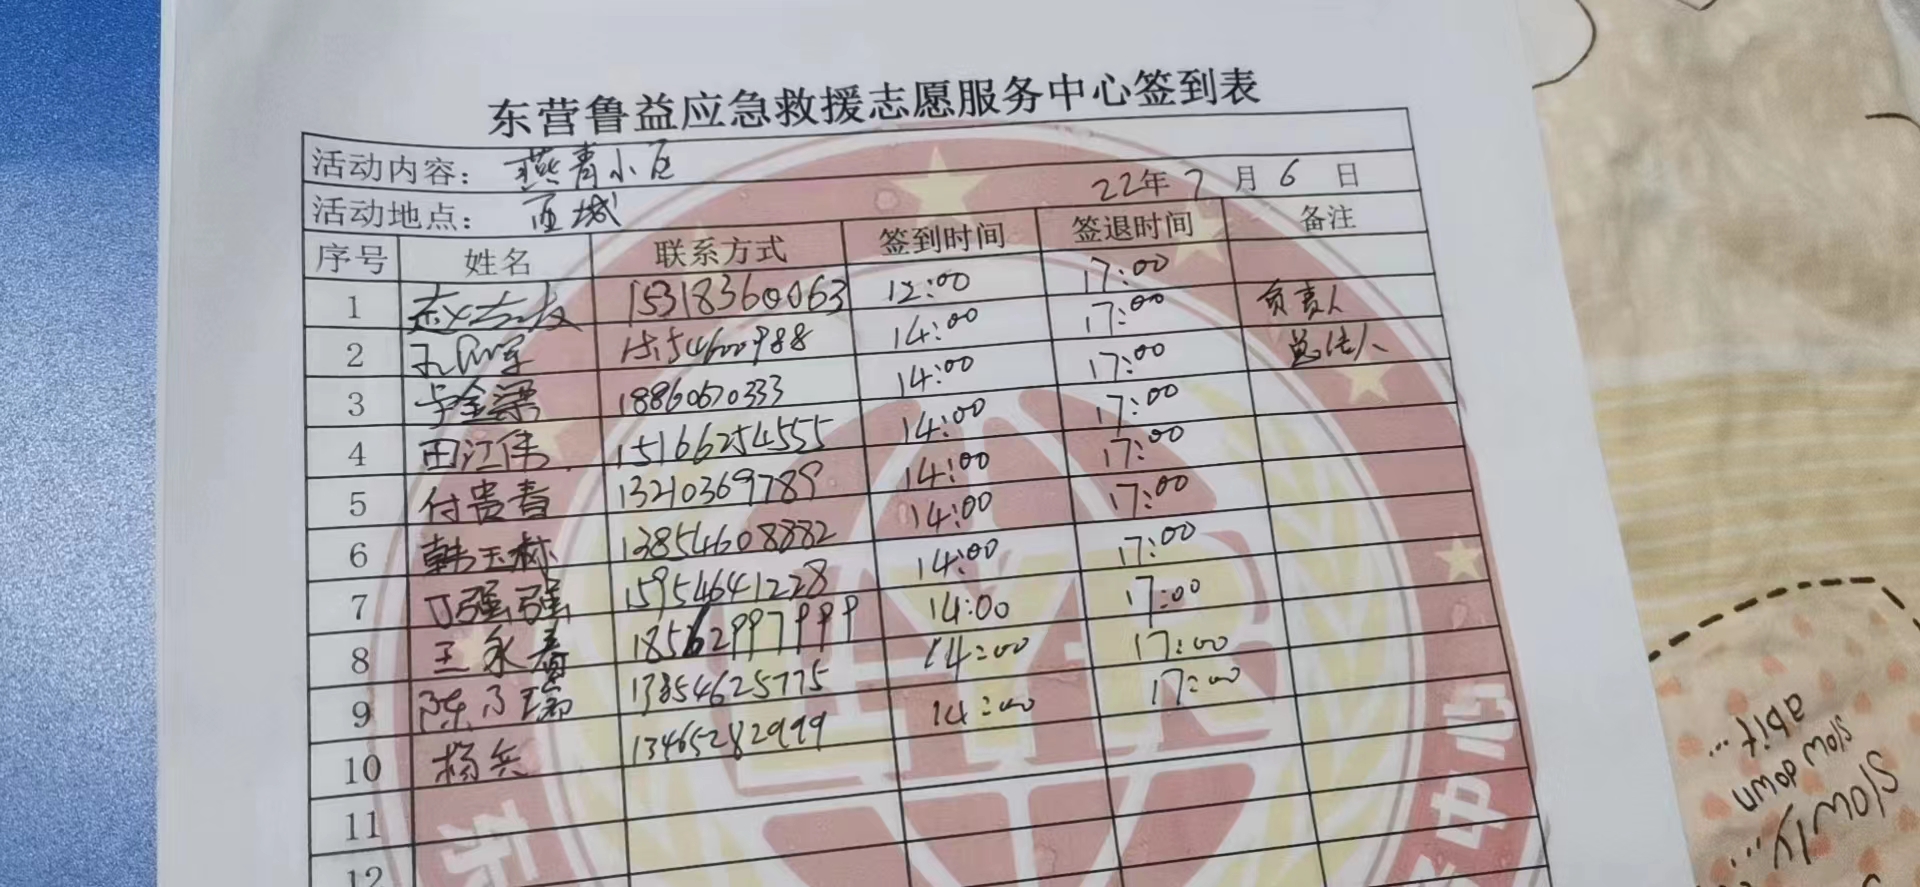 东营鲁益应急救援志愿服务中心签到表
活动内容： 燕青小区
活动地点： 西城 22年7月6日
序号 姓名 联系方式 签到时间 签退时间 备注
1 15318360063 12:00 17:00
2 15154600988 14:00 17:00 负责人
3 18860670333 14:00 17:00
4 田江伟 15166254555 14:00 17:00
5 付贵春 13210369789 14:00 17:00
6 韩玉树 13854608882 14:00 17:00
7 丁强强 15954641228 14:00 17:00
8 王永春 18562997999 14:00 17:00
9 13854625775 14:00 17:00
10 杨兵 13465282999 14:00 17:00
11
12
东
中心
slowly...
slow down
abit...